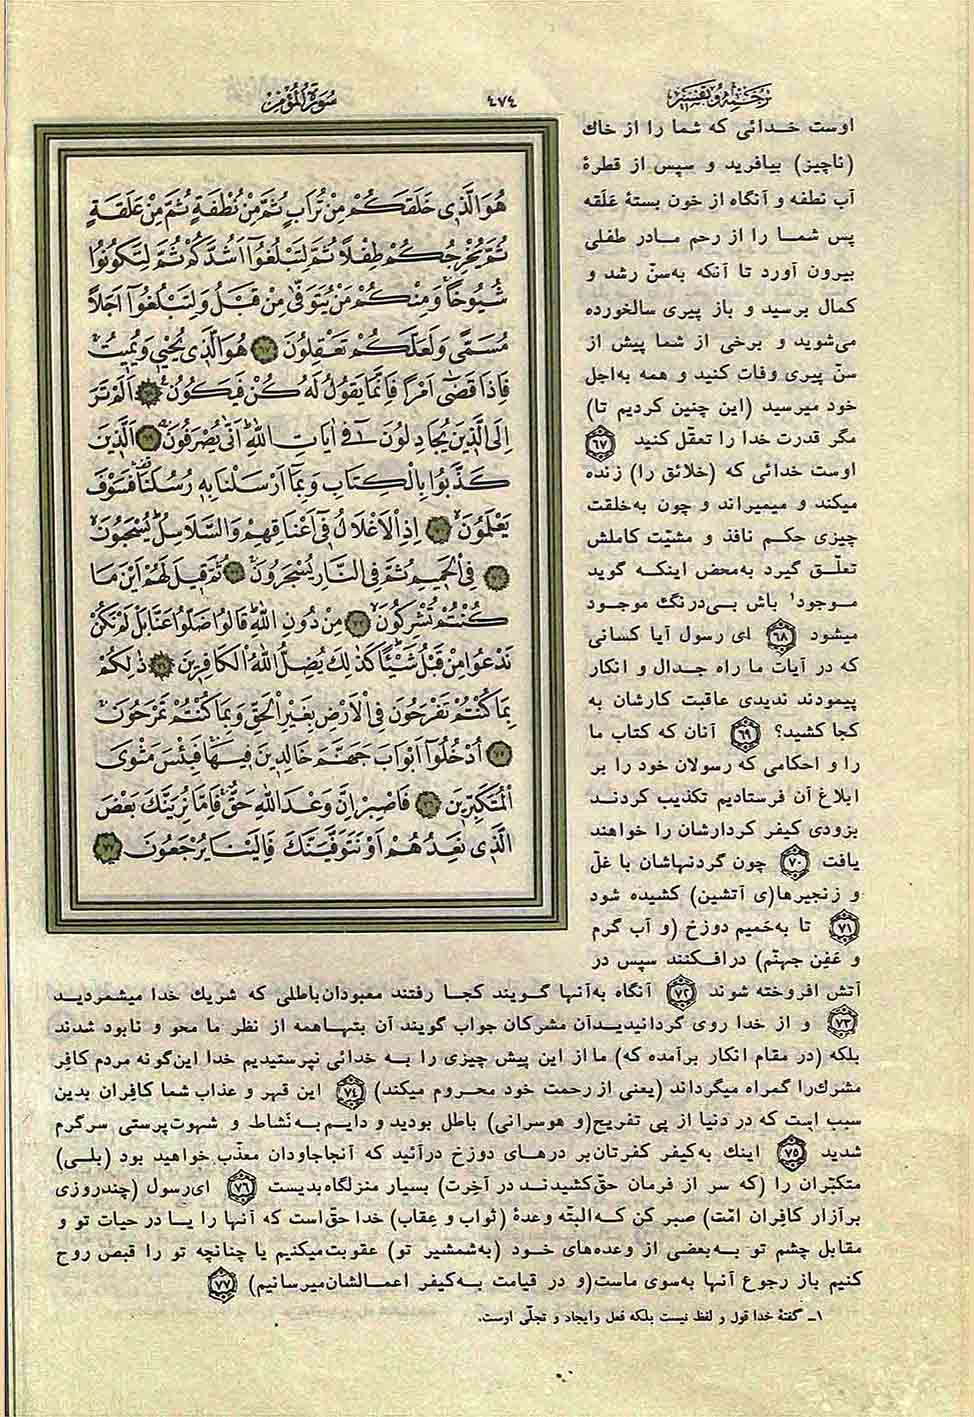 ترجمه و تفسیر
۴۷۴
سورة المؤمن
هُوَ الَّذِي خَلَقَكُمْ مِنْ تُرَابٍ ثُمَّ مِنْ نُطْفَةٍ ثُمَّ مِنْ عَلَقَةٍ
ثُمَّ يُخْرِجُكُمْ طِفْلًا ثُمَّ لِتَبْلُغُوا أَشُدَّكُمْ ثُمَّ لِتَكُونُوا
شُيُوخًا وَمِنْكُمْ مَنْ يُتَوَفَّى مِنْ قَبْلُ وَلِتَبْلُغُوا أَجَلًا
مُسَمًّى وَلَعَلَّكُمْ تَعْقِلُونَ ۶۷ هُوَ الَّذِي يُحْيِي وَيُمِيتُ
فَإِذَا قَضَى أَمْرًا فَإِنَّمَا يَقُولُ لَهُ كُنْ فَيَكُونُ ۶۸ أَلَمْ تَرَ
إِلَى الَّذِينَ يُجَادِلُونَ فِي آيَاتِ اللَّهِ أَنَّى يُصْرَفُونَ ۶۹ الَّذِينَ
كَذَّبُوا بِالْكِتَابِ وَبِمَا أَرْسَلْنَا بِهِ رُسُلَنَا فَسَوْفَ
يَعْلَمُونَ ۷۰ إِذِ الْأَغْلَالُ فِي أَعْنَاقِهِمْ وَالسَّلَاسِلُ يُسْحَبُونَ
۷۱ فِي الْحَمِيمِ ثُمَّ فِي النَّارِ يُسْجَرُونَ ۷۲ ثُمَّ قِيلَ لَهُمْ أَيْنَ مَا
كُنْتُمْ تُشْرِكُونَ ۷۳ مِنْ دُونِ اللَّهِ قَالُوا ضَلُّوا عَنَّا بَلْ لَمْ نَكُنْ
نَدْعُوا مِنْ قَبْلُ شَيْئًا كَذَلِكَ يُضِلُّ اللَّهُ الْكَافِرِينَ ۷۴ ذَلِكُمْ
بِمَا كُنْتُمْ تَفْرَحُونَ فِي الْأَرْضِ بِغَيْرِ الْحَقِّ وَبِمَا كُنْتُمْ تَمْرَحُونَ
۷۵ أُدْخُلُوا أَبْوَابَ جَهَنَّمَ خَالِدِينَ فِيهَا فَبِئْسَ مَثْوَى
الْمُتَكَبِّرِينَ ۷۶ فَاصْبِرْ إِنَّ وَعْدَ اللَّهِ حَقٌّ فَإِمَّا نُرِيَنَّكَ بَعْضَ
الَّذِي نَعِدُهُمْ أَوْ نَتَوَفَّيَنَّكَ فَإِلَيْنَا يُرْجَعُونَ ۷۷
اوست خدائی که شما را از خاك
(ناچیز) بیافرید و سپس از قطرۀ
آب نطفه و آنگاه از خون بستۀ عَلَقه
پس شما را از رحم مادر طفلی
بیرون آورد تا آنکه به‌سنّ رشد و
کمال برسید و باز پیری سالخورده
می‌شوید و برخی از شما پیش از
سنّ پیری وفات کنید و همه به‌اجل
خود میرسید (این چنین کردیم تا)
مگر قدرت خدا را تعقّل کنید ۶۷
اوست خدائی که (خلائق را) زنده
میکند و میمیراند و چون به‌خلقت
چیزی حکم نافذ و مشیّت کاملش
تعلّق گیرد به‌محض اینکه گوید
موجود۱ باش بی‌درنگ موجود
میشود ۶۸ ای رسول آیا کسانی
که در آیات ما راه جدال و انکار
پیمودند ندیدی عاقبت کارشان به
کجا کشید؟ ۶۹ آنان که کتاب ما
را و احکامی که رسولان خود را بر
ابلاغ آن فرستادیم تکذیب کردند
بزودی کیفر کردارشان را خواهند
یافت ۷۰ چون گردنهاشان با غلّ
و زنجیرها(ی آتشین) کشیده شود
۷۱ تا به‌حَمیم دوزخ (و آب گرم
و عَفِن جهنّم) درافکنند سپس در
آتش افروخته شوند ۷۲ آنگاه به‌آنها گویند کجا رفتند معبودان‌باطلی که شریك خدا میشمردید
۷۳ و از خدا روی گردانیدید‌آن مشرکان جواب گویند آن بتهاهمه از نظر ما محو و نابود شدند
بلکه (در مقام انکار برآمده که) ما از این پیش چیزی را به خدائی نپرستیدیم خدا این‌گونه مردم کافِر
مشرك‌را گمراه میگرداند (یعنی از رحمت خود محروم میکند) ۷۴ این قهر و عذاب شما کافِران بدین
سبب است که در دنیا از پی تفریح(و هوسرانی) باطل بودید و دایم به‌نَشاط و شهوت‌پرستی سرگرم
شدید ۷۵ اینك به‌کیفر کفرتان‌بر درهای دوزخ درآئید که آنجاجاودان معذّب خواهید بود (بلی)
متکبّران را (که سر از فرمان حق‌کشیدند در آخِرت) بسیار منزلگاه‌بدیست ۷۶ ای‌رسول (چندروزی
برآزار کافِران امّت) صبر کن که‌البتّه وعدۀ (ثواب و عِقاب) خدا حق‌است که آنها را یا در حیات تو و
مقابل چشم تو به‌بعضی از وعده‌های خود (به‌شمشیر تو) عقوبت‌میکنیم یا چنانچه تو را قبض روح
کنیم باز رجوع آنها به‌سوی ماست(و در قیامت به‌کیفر اعمالشان‌میرسانیم) ۷۷
۱ـ گفتۀ خدا قول و لفظ نیست بلکه فعل وایجاد و تجلّی اوست.